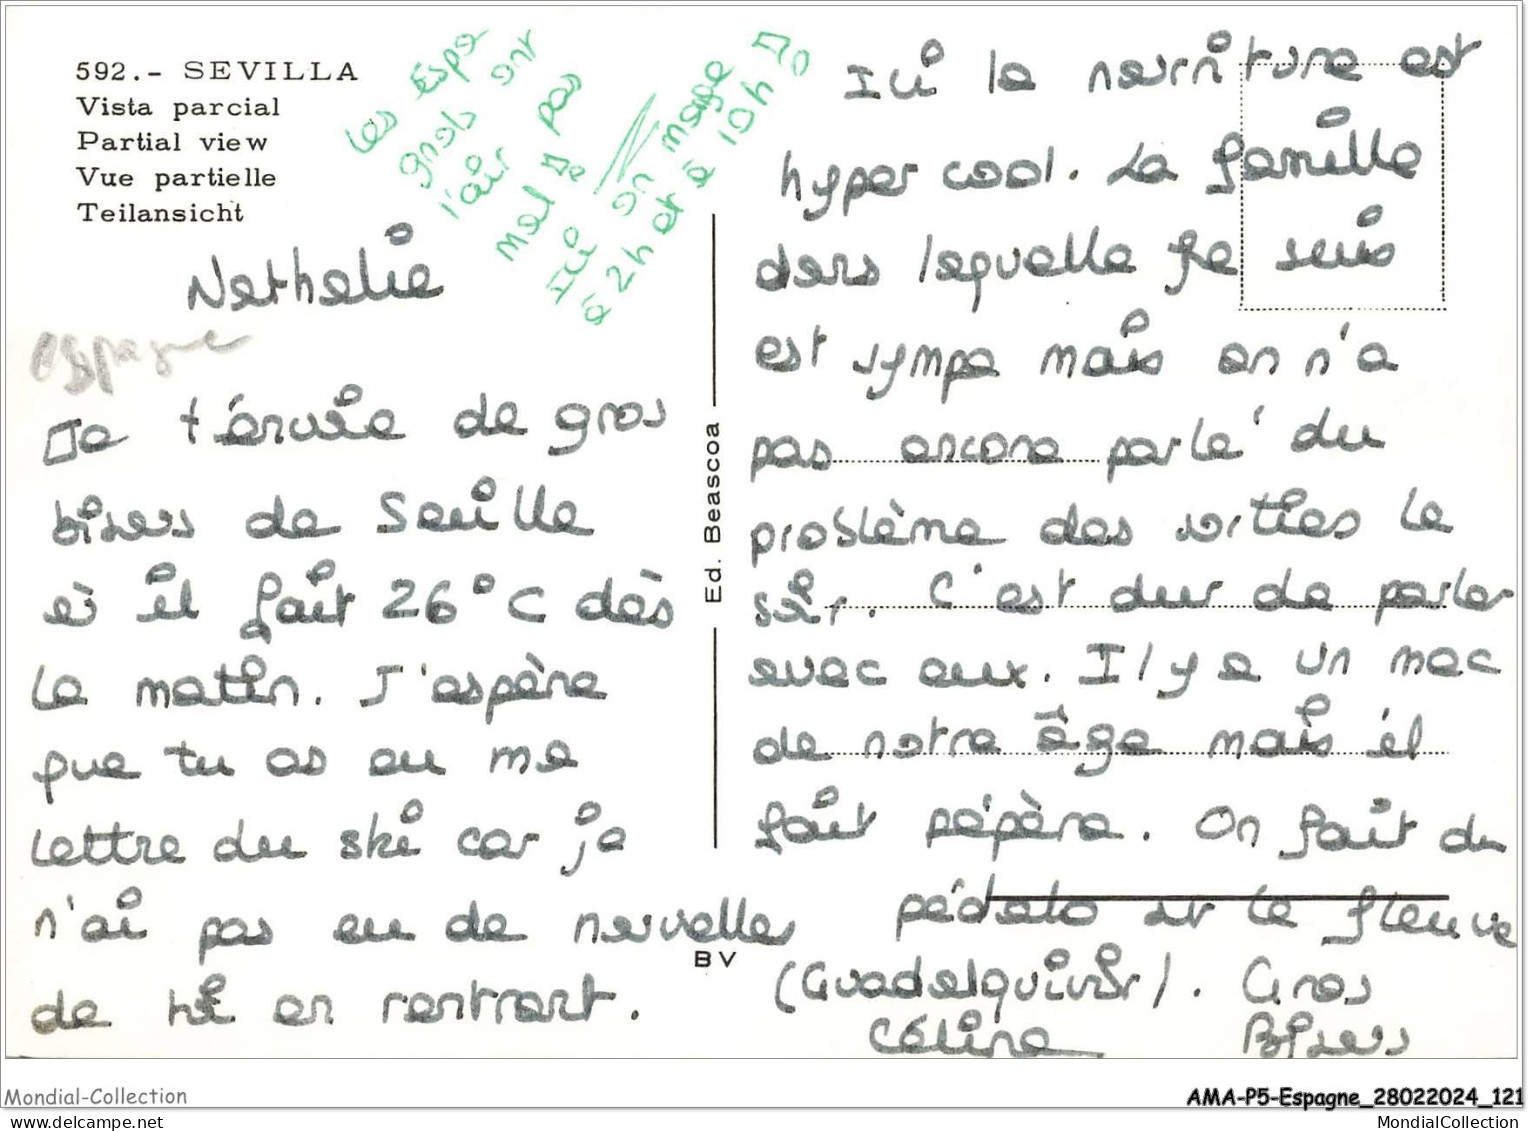 592.- SEVILLA
Vista parcial
Partial view
Vue partielle
Teilansicht
Les Espa
gnols ont
l'air pas
mal De
Ici on mange
à 2h et à 10h Du
Nathalie
espagne
Je t'envoie de gros
bisous de Seville
où il fait 26°C dès
le matin. J'espère
que tu as eu ma
lettre du ski car je
n'ai pas eu de nouvelles
de toi en rentrant.
Ici la nourriture est
hyper cool. La famille
dans laquelle je suis
est sympa mais on n'a
pas encore parlé du
problème des sorties le
soir. C'est dur de parler
avec eux. Il y a un mec
de notre âge mais il
fait pépère. On fait du
pédalo sur le fleuve
(Guadalquivir). Gros
Céline Bisous
Ed. Beascoa
BV
Mondial-Collection
AMA-P5-Espagne_28022024_121
MondialCollection